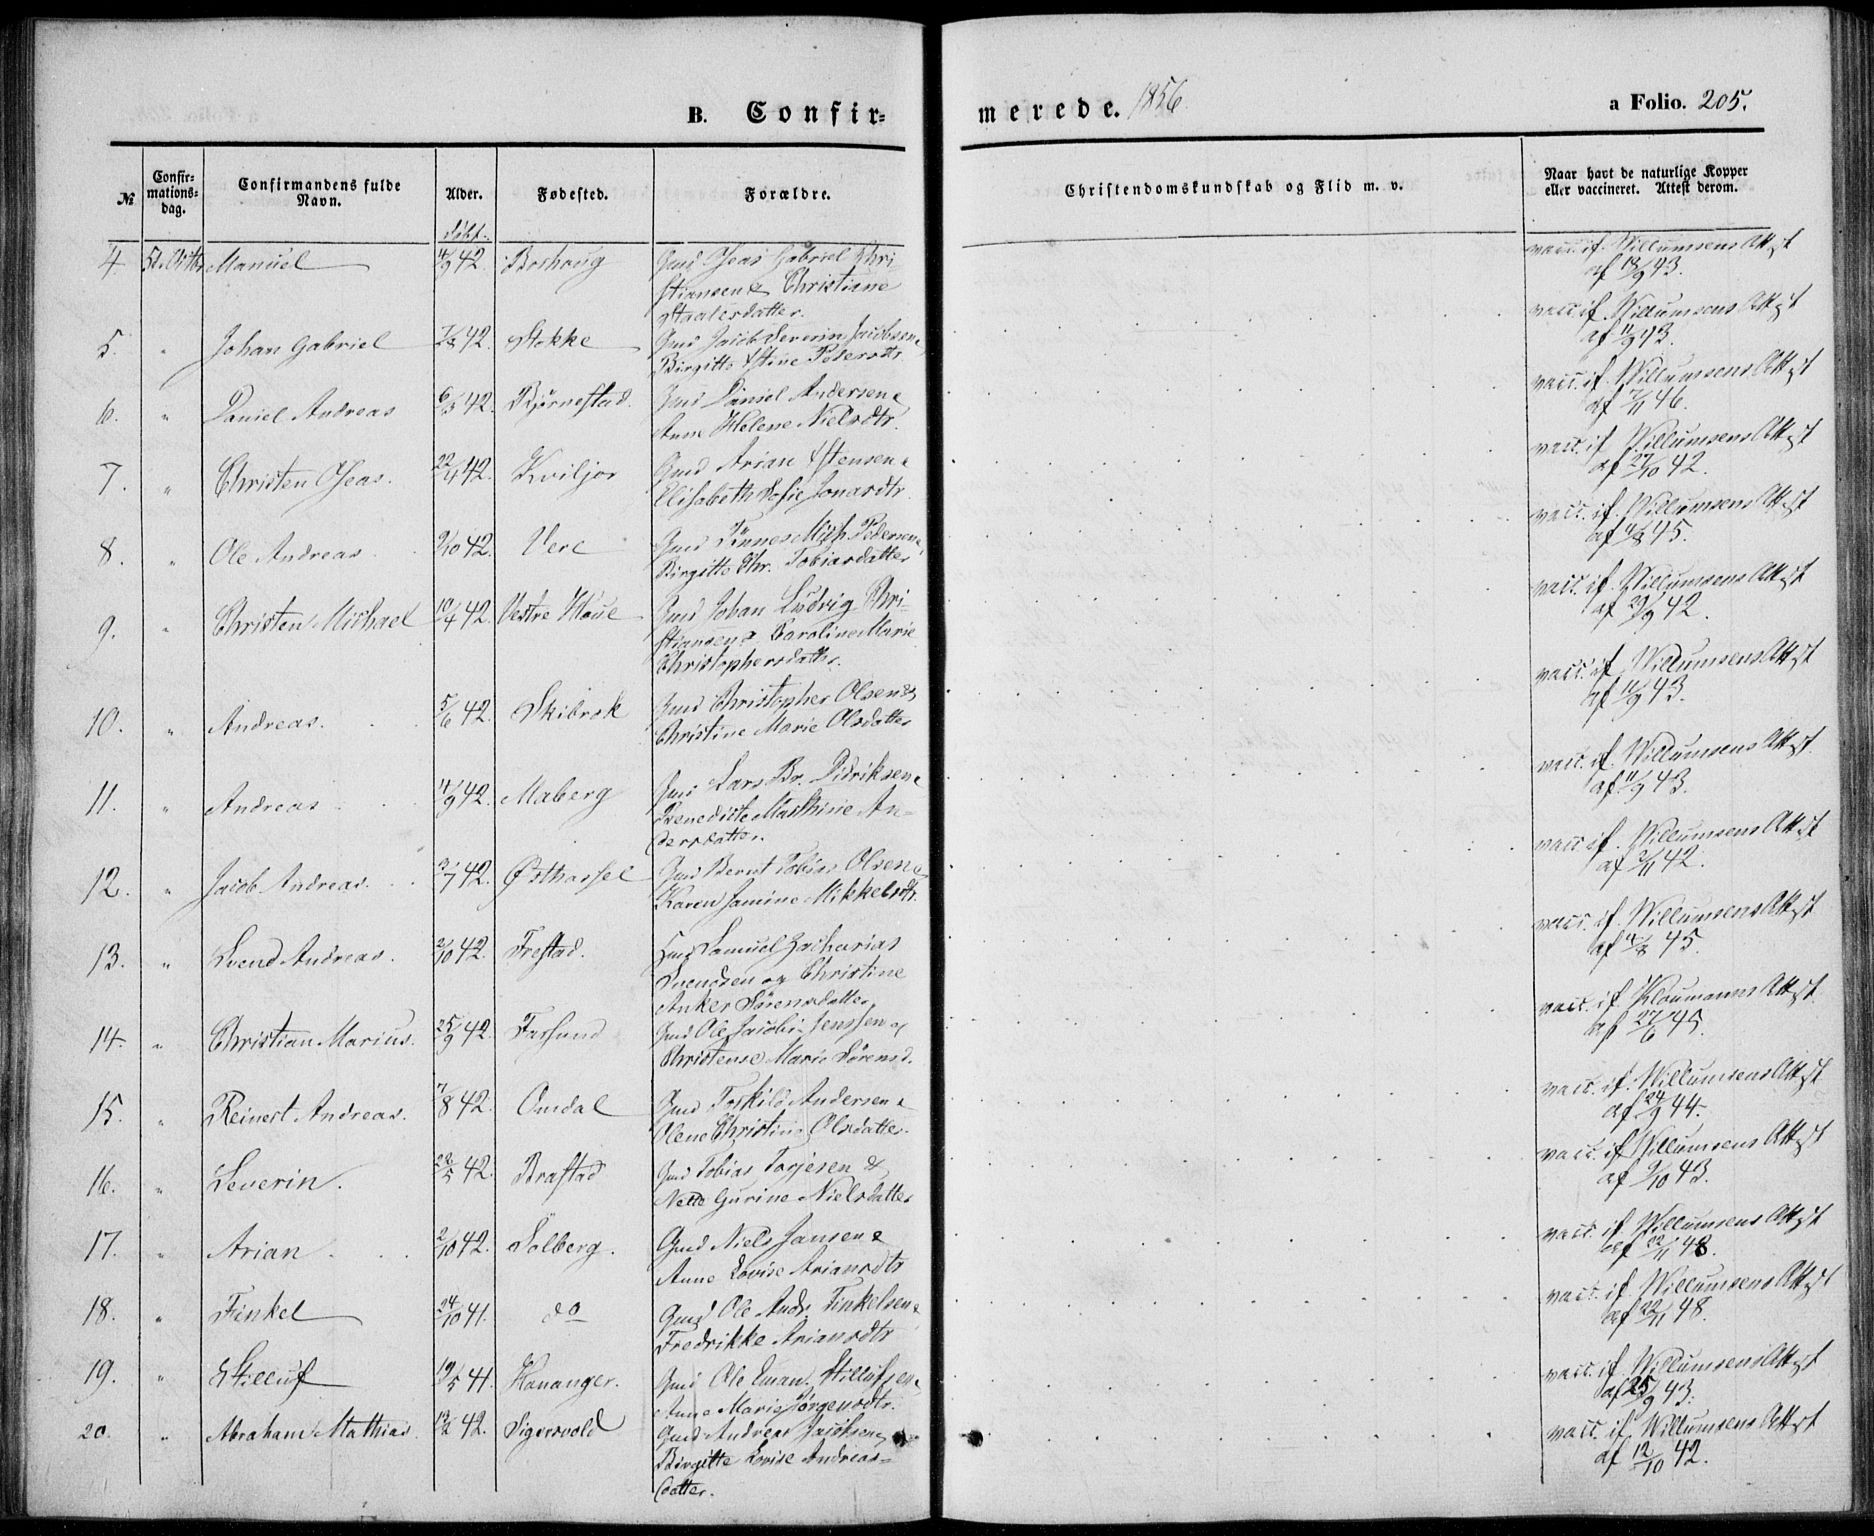 B. Confir=
merede. 1856.
a Folio. 205.
№
Confir-
mations-
dag.
Confirmandens fulde
Navn.
Alder.
Fødested.
Forældre.
Christendomskundskab og Flid m. v.
Naar havt de naturlige Kopper
eller vaccineret. Attest derom.
døbt.
4 Manuel 11/9 42. Boshoug Gmd Oseas Gabriel Chri-
stiansen & Christiane
Staalesdatter.
vacc. if. Willumsens Attest
af 13/9 43.
5. " Johan Gabriel 42. Stokke Gmd Jacob Severin Jacobsen &
Birgitte Stine Pedersdtr.
vacc. if. Willumsens Attest
af 11/9 43.
6. " Daniel Andreas 6/3 42. Bjørnestad. Gmd Daniel Andersen &
Anne Helene Nielsdtr.
vacc. if. Willumsens Attest
af 7/11 46.
7. " Christen Oseas. 42. Kviljor Gmd Arian Stensen &
Elisabeth Sofie Jonasdtr
vacc. if. Willumsens Attest
af 27/10 42.
8. " Ole Andreas 9/10 42. Vere Gmd Tönnes Mich. Pedersen &
Birgitte Chr. Tobiasdatter
vacc. if. Willumsens Attest
af 45.
9. " Christen Michael 10/4 42. Vestre Houe Gmd Johan Ludvig Chri-
stiansen & Caroline Marie
Christophersdatter.
vacc. if. Willumsens Attest
af 42.
10. " Andreas. 5/6 42. Skibrok Gmd Christopher Olsen &
Christine Marie Olsdatter
vacc. if. Willumsens Attest
af 11/9 43.
11. " Andreas 11/9 42. Maberg Gmd Lars Br. Didriksen &
Benedicte Marthine An-
dersdatter.
vacc. if. Willumsens Attest
af 11/9 43.
12. " Jacob Andreas. 3/7 42. Østhassel Gmd Bernt Tobias Olsen &
Karen Jamine Mikkelsdtr.
vacc. if. Willumsens Attest
af 2/11 42.
13. " Svend Andreas. 2/10 42. Frestad. Samuel Zacharias
Svendsen og Christine
Anker Sörensdatter
vacc. if. Willumsens Attest
af 45.
14. " Christian Marius. 25/9 42. Farsund Gmd Ole Jacob Jenssen &
Christense Marie Sørensd.
vacc. if. Kloumanns Attest
af 27/6 45.
15. " Reinert Andreas. 7/8 42. Omdal Gmd Toskild Andersen &
Olene Christine Olsdatter.
vacc. if. Willumsens Attest
af 24/9 44.
16. " Severin. 22/5 42. Brastad Gmd Tobias Torjesen &
Nette Gurine Nielsdatter
vacc. if. Willumsens Attest
af 9/10 43.
17. " Arian 2/10 42. Sölberg. Gmd Niels Jansen &
Anne Lovise Ariansdtr
vacc. if. Willumsens Attest
af 22/11 48.
18. " Finkel 24/10 41. do Gmd Ole Andr. Finkelsen &
Fredrikke Ariansdtr
vacc. if. Willumsens Attest
af 22/11 48.
19. " Stilluf 19/5 41. Hananger. Gmd Ole Eman. Stillufsen &
Anne Marie Jörgensdtr.
vacc. if. Willumsens Attest
af 25/9 43.
20. " Abraham Mathias. 13/2 42. Sigersvold Gmd Andreas Jacobsen &
Birgitte Lovise Andreas=
datter.
vacc. if. Willumsens Attest
af 12/10 42.